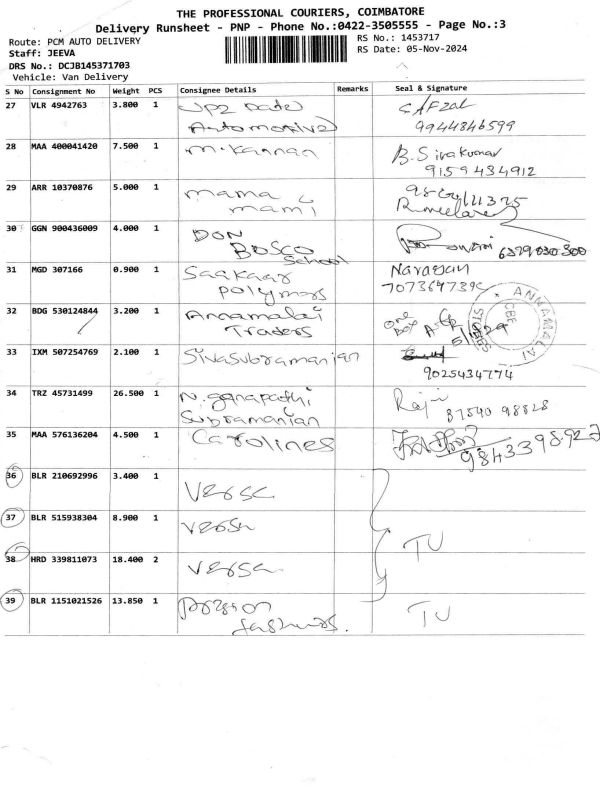 THE PROFESSIONAL COURIERS, COIMBATORE
Delivery Runsheet - PNP - Phone No.:0422-3505555 - Page No.:3
Route: PCM AUTO DELIVERY
RS No.: 1453717
Staff: JEEVA
RS Date: 05-Nov-2024
DRS No.: DCJB145371703
Vehicle: Van Delivery
S No Consignment No Weight PCS Consignee Details Remarks Seal & Signature
27 VLR 4942763 3.800 1 Up2 Date
Automotive
9944846599
28 MAA 400041420 7.500 1 M. Kannan B. Sivakumar
9159434912
29 ARR 10370876 5.000 1 mama
mami
30 GGN 900436009 4.000 1 DON
BOSCO
School
6379030300
31 MGD 307166 0.900 1 Saakaar Narayan
Polymers
32 BDG 530124844 3.200 1 Annamalai one
Traders Box
ANNAMALAI
CBE
33 IXM 507254769 2.100 1 Sivasubramanian
9025434774
34 TRZ 45731499 26.500 1 N. ganapathi Raji
Subramanian 87540 98828
35 MAA 576136204 4.500 1 Carolines
9843398927
36 BLR 210692996 3.400 1
37 BLR 515938304 8.900 1 TU
38 HRD 339811073 18.400 2
39 BLR 1151021526 13.850 1 TU